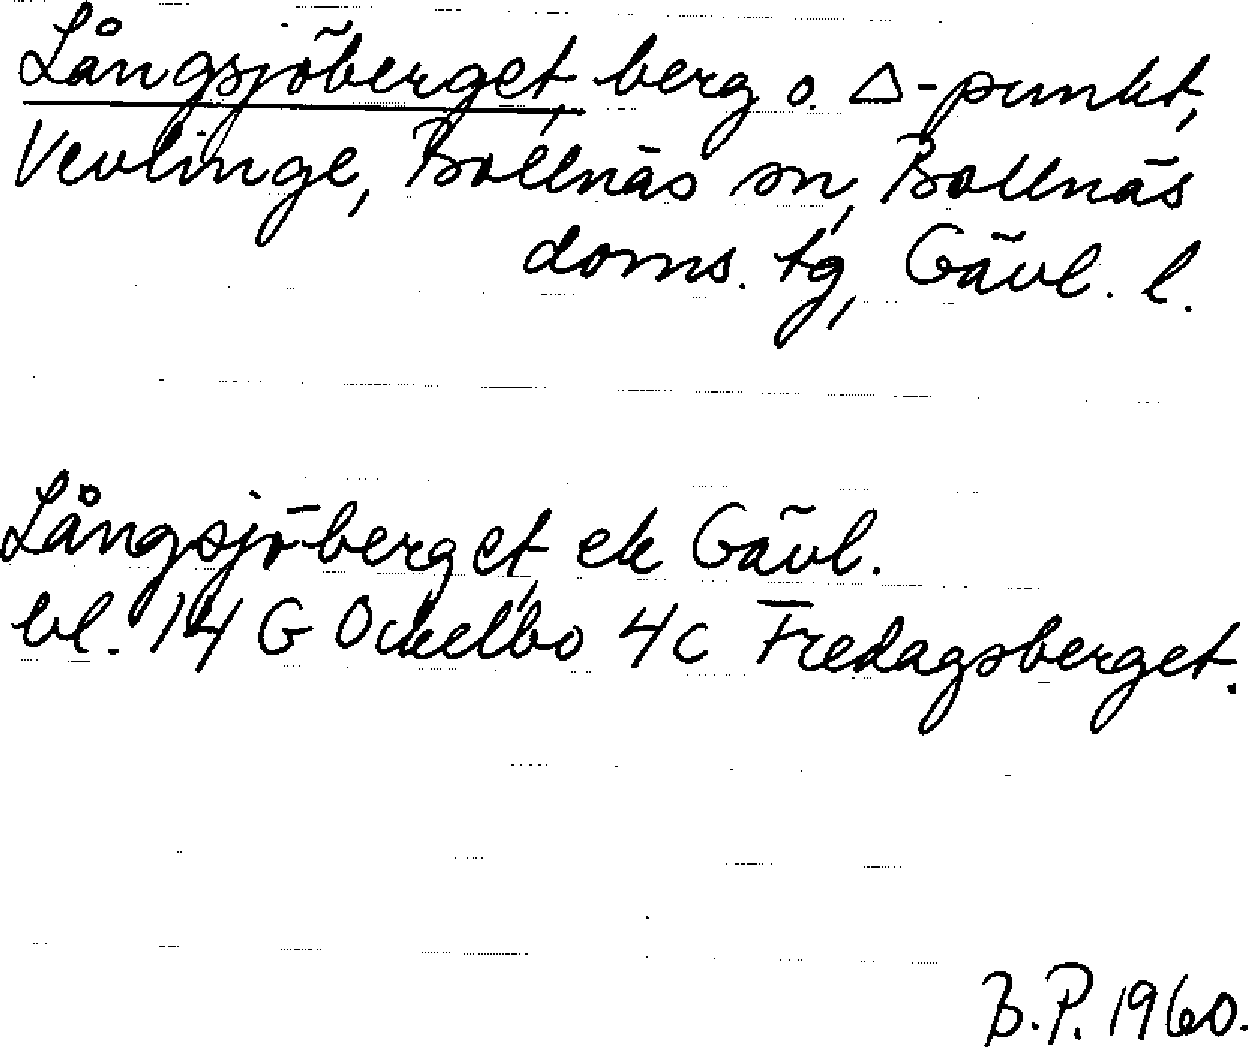 Långsjöberget, berg o. △-punkt,
Vevlinge, Bollnäs sn, Bollnäs
doms. tg, Gävl. l.
Långsjöberget, ek Gävl.
bl. 14 G Ockelbo 4c Fredagsberget.
B.P. 1960.